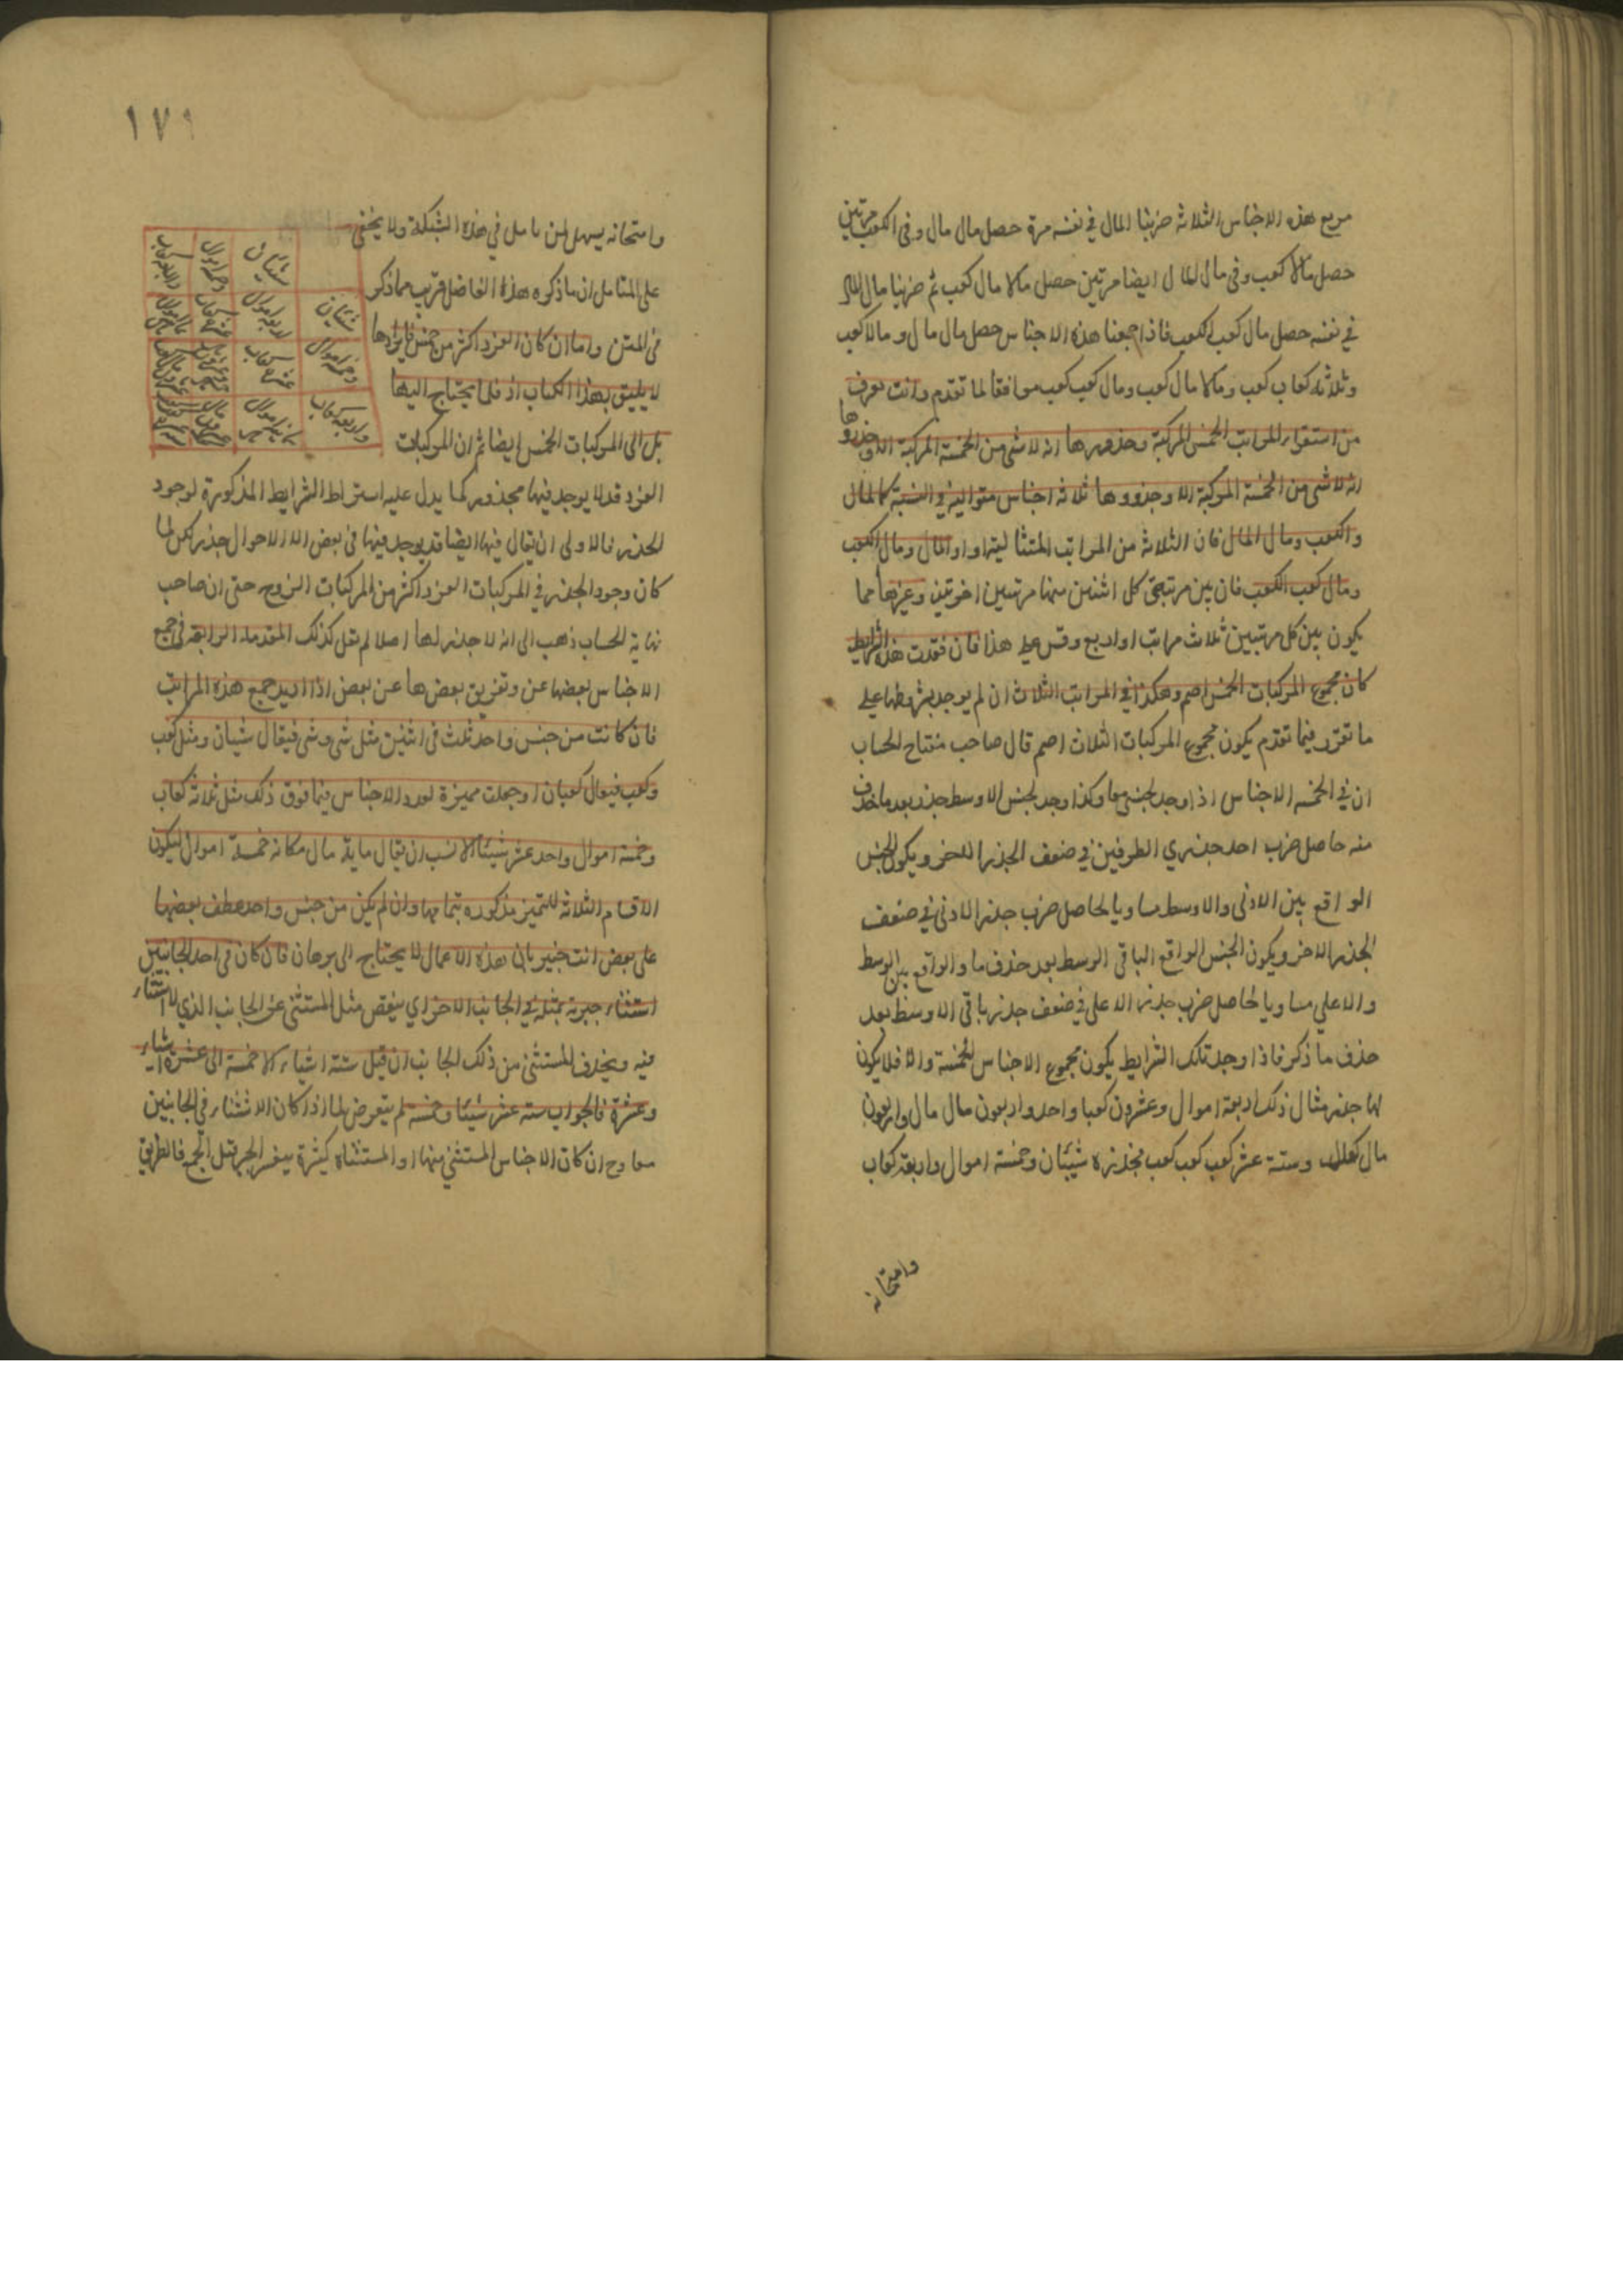 مربع هذه الاجناس الثلاثة ضربنا المال في نفسه مرة حصل مال مال وفى الكعب مرتين
حصل مالا كعب وفى مال المال ايضا مرتين حصل مالا مال كعب ثم ضربنا مال المال
في نفسه حصل مال كعب الكعب فاذا جمعنا هذه الاجناس حصل مال مال ومالا كعب
وثلاثة كعاب كعب ومالا مال كعب ومال كعب كعب موافقا لما تقدم وانت تعرف
من استقراء المراتب الخمس المركبة وجذورها انه لا شى من الخمسة المركبة الا وجذروها
انه لا شى من الخمسة المركبة الا وجذروها ثلاثة اجناس متوالية في النسبة كالمال
والكعب ومال المال فان الثلاث من المراتب المتتالية او المال ومال الكعب
ومال كعب الكعب فان بين مرتبتى كل اثنين منها مرتبتين اخرتين وغيرها مما
يكون بين كل مرتبتين ثلاث مراتب او اربع وقس على هذا فان فقدت هذه الشرايط
كان مجموع المركبات الخمس اصم وهكذا في المراتب الثلاث ان لم يوجد بشروطها على
ما تقرر فيما تقدم يكون مجموع المركبات الثلاث اصم قال صاحب مفتاح الحساب
ان في الخمسة الاجناس اذا وجد لجنس معا وكذا وجد لجنس الاوسط جذر بعد ما حذف
منه حاصل ضرب احد جذري الطرفين في ضعف الجذر الاخر ويكون الجنس
الواقع بين الادنى والاوسط مساويا لحاصل ضرب جذر الادنى في ضعف
الجذر الاخر ويكون الجنس الواقع الباقى الوسط بعد حذف ما والواقع بين الوسط
والاعلي مساويا لحاصل ضرب جذر الاعلى في ضعف جذر باقى الاوسط بعد
حذف ما ذكر فاذا وجد تلك الشرايط يكون مجموع الاجناس الخمسة والا فلا يكون
لها جذر مثال ذلك اربعة اموال وعشرون كعبا واحد واربعون مال مال واربعون
مال كعب وستة عشر كعب كعب كعب فجذره شيئان وخمسة اموال واربعة كعاب
وامتحانه
١٧٩
وامتحانه يسهل لمن تامل في هذه الشبكة ولا يخفى
على المتامل ان ما ذكره هذا الفاضل قريب مما ذكر
فى المتن واما ان كان المفرد اكثر من خمس فايرادها
لا يليق بهذا الكتاب اذ قلما يحتاج اليها
بل الى المركبات الخمس ايضا ثم ان المركبات
شيئان
شيئان
اربعة اموال
وخمسة اموال
عشرة كعاب
واربعة كعاب
المفرد قد لا يوجد فيها مجذور كما يدل عليه اشتراط الشرايط المذكورة لوجود
الجذر فالاولى ان يقال فيها ايضا قد يوجد فيها فى بعض الا الاحوال جذر لكن لما
كان وجود الجذر في المركبات المفرد اكثر من المركبات الزوج حتى ان صاحب
نهاية الحساب ذهب الى انه لا جذر لها اصلا لم نقل كذلك المقدمة الرابعة فى جمع
الاجناس بعضها عن وتفريق بعضها عن بعض اذا اريد جمع هذه المراتب
فان كانت من جنس واحد ثلث فى اثنين مثل شى وشى فيقال شيئان ومثل كعب
وكعب فيقال كعبان او جعلت مميزة لعدد الاجناس فيما فوق ذلك مثل ثلاثة كعاب
وخمسة اموال واحد عشر شيئا الانسب ان يقال ماية مال مكانه خمسة اموال ليكون
الاقسام الثلاثة للتميز مذكوره بتمامها وان لم يكن من جنس واحد عطف بعضها
على بعض انت خبير بان هذه الاعمال لا يحتاج الى برهان فان كان فى احد الجانبين
استثناء جبرته بمثله في الجانب الاخر اي ينقص مثل المستثنى عن الجانب الذي لا استثناء
فيه ويحذف المستثنى من ذلك الجانب ان قيل ستة اشياء الا خمسة الى عشرة اشياء
وعشرة فالجواب ستة عشر شيئا وخمسة لم يتعرض لما اذا كان الاستثناء في الجانبين
معا وح ان كان الاجناس المستثنى منها او المستثناة كثيرة يعسر الجبر قبل الجمع فالطريق